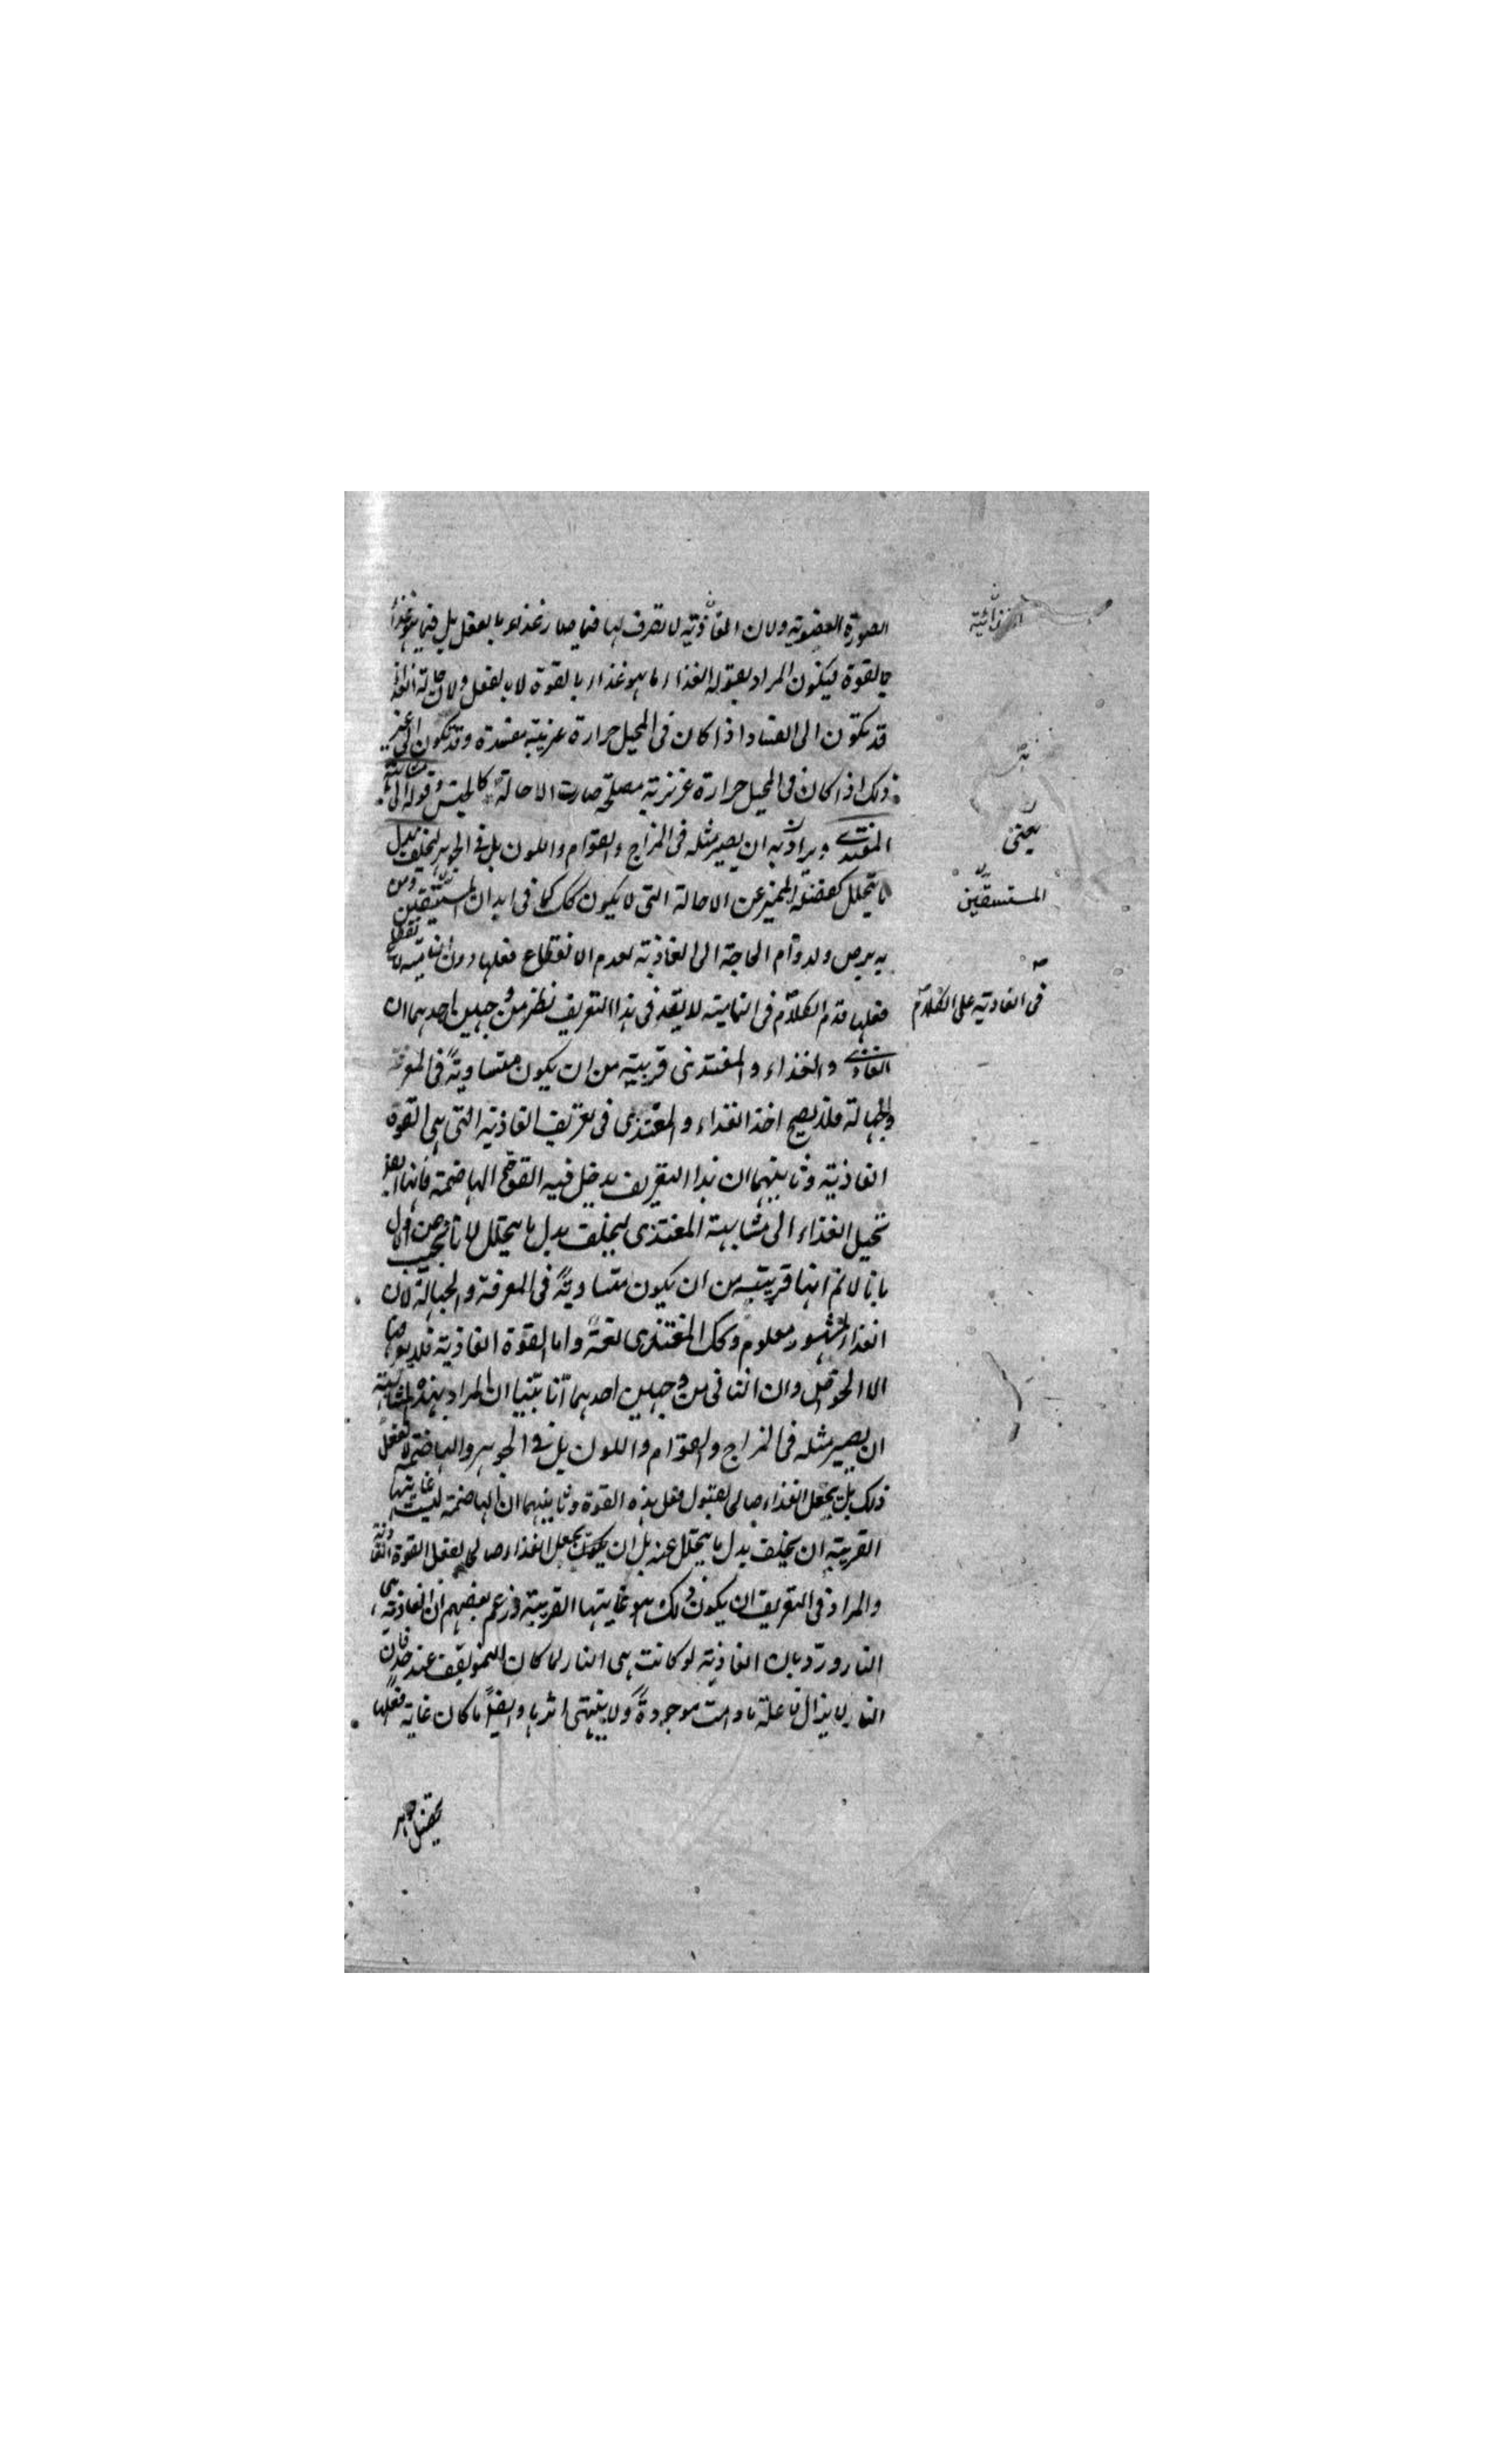 الصورة العضوية ولان الغاذية لا تصرف لها فيما صار غذاء بالفعل بل فيما هو غذاء
بالقوة فيكون المراد بقوله الغذاء ما هو غذاء بالقوة لا بالفعل ولان احالة الغذاء
قد تكون الى الفساد اذا كان في المحيل حرارة غريبة مفسدة وقد تكون الى غير
ذلك اذا كان في المحيل حرارة غريزية مصلحة صارت الاحالة كالجنس وقوله الى مشابهة
المغتذى ويراد به ان يصير مثله في المزاج والقوام واللون بل في الجوهر ليخلف بدل
ما يتحلل كفصله المميز عن الاحالة التي لا يكون كك كما في ابدان المستسقين ومن
به برص ولدوام الحاجة الى الغاذية لعدم انقطاع فعلها دون النامية لانقطاع
فعلها قدم الكلام في النامية لا يقد في هذا التعريف نظر من وجهين احدهما ان
الغاذى والغذاء والمغتذى قريبة من ان يكون متساوية في المعرفة
والجهالة فلا يصح اخذ الغذاء والمغتذى في تعريف الغاذية التي هي القوة
الغاذية وثانيهما ان هذا التعريف يدخل فيه القوة الهاضمة فانها ايضا
تحيل الغذاء الى مشابهة المغتذى ليخلف بدل ما يتحلل لانا نجيب عن الاول
بانا لا نم انها قريبة من ان يكون متساوية في المعرفة والجهالة لان
الغذاء المشهور معلوم وكك المغتذى لغة واما القوة الغاذية فلا يعرفها
الا الخواص وان الثاني من وجهين احدهما انا بينا ان المراد بهذه المشابهة
ان يصير مثله في المزاج والقوام واللون بل في الجوهر والهاضمة لا تفعل
ذلك بل يجعل الغذاء صالحا لقبول فعل هذه القوة وثانيهما ان الهاضمة ليست غايتها
القريبة ان يخلف بدل ما يتحلل عنه بل ان يجعل الغذاء صالحا لفعل القوة الغاذية
والمراد في التعريف ان يكون ذلك هو غايتها القريبة وزعم بعضهم ان الغاذية هي
النار ورد بان الغاذية لو كانت هي النار لما كان النمو يقف عند حد فان
النار لا يزال فاعلة ما دامت موجودة ولا ينتهى اثرها وايضا ما كان غاية فعلها
يعنى
المستسقين
في الغاذية على الكلام